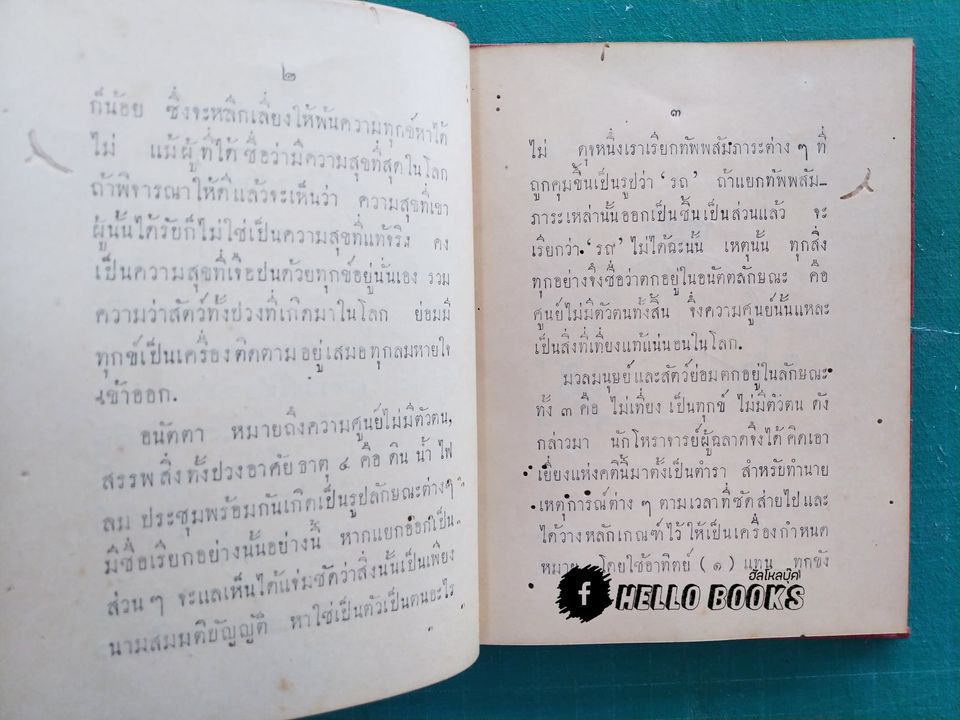 ๒
ก็น้อย ซึ่งจะหลีกเลี่ยงให้พ้นความทุกข์หาได้
ไม่ แม้ผู้ที่ได้ชื่อว่ามีความสุขที่สุดในโลก
ถ้าพิจารณาให้ดีแล้วจะเห็นว่า ความสุขที่เขา
ผู้นั้นได้รับก็ไม่ใช่เป็นความสุขที่แท้จริง คง
เป็นความสุขที่เจือปนด้วยทุกข์อยู่นั่นเอง รวม
ความว่าสัตว์ทั้งปวงที่เกิดมาในโลก ย่อมมี
ทุกข์เป็นเครื่องติดตามอยู่เสมอทุกลมหายใจ
เข้าออก.
อนัตตา หมายถึงความศูนย์ไม่มีตัวตน,
สรรพสิ่งทั้งปวงอาศัยธาตุ ๔ คือ ดิน น้ำ ไฟ
ลม ประชุมพร้อมกันเกิดเป็นรูปลักษณะต่างๆ
มีชื่อเรียกอย่างนั้นอย่างนี้ หากแยกออกเป็น
ส่วนๆ จะแลเห็นได้แจ่มชัดว่าสิ่งนั้นเป็นเพียง
นามสมมติบัญญัติ หาใช่เป็นตัวเป็นตนอะไร
๓
ไม่ ดุจหนึ่งเราเรียกทัพพสัมภาระต่าง ๆ ที่
ถูกคุมขึ้นเป็นรูปว่า ‘รถ’ ถ้าแยกทัพพสัม-
ภาระเหล่านั้นออกเป็นชิ้นเป็นส่วนแล้ว จะ
เรียกว่า ‘รถ’ ไม่ได้ฉะนั้น เหตุนั้น ทุกสิ่ง
ทุกอย่างจึงชื่อว่าตกอยู่ในอนัตตลักษณะ คือ
ศูนย์ไม่มีตัวตนทั้งสิ้น ซึ่งความศูนย์นั้นแหละ
เป็นสิ่งที่เที่ยงแท้แน่นอนในโลก.
มวลมนุษย์และสัตว์ย่อมตกอยู่ในลักษณะ
ทั้ง ๓ คือ ไม่เที่ยง เป็นทุกข์ ไม่มีตัวตน ดัง
กล่าวมา นักโหราจารย์ผู้ฉลาดจึงได้คิดเอา
เยี่ยงแห่งคตินี้มาตั้งเป็นตำรา สำหรับทำนาย
เหตุการณ์ต่าง ๆ ตามเวลาที่ซัดส่ายไปและ
ได้วางหลักเกณฑ์ไว้ ให้เป็นเครื่องกำหนด
หมาย โดยใช้อาทิตย์ (๑) แทน ทุกขัง
ฮัลโหลบุ๊ค
f HELLO BOOKS